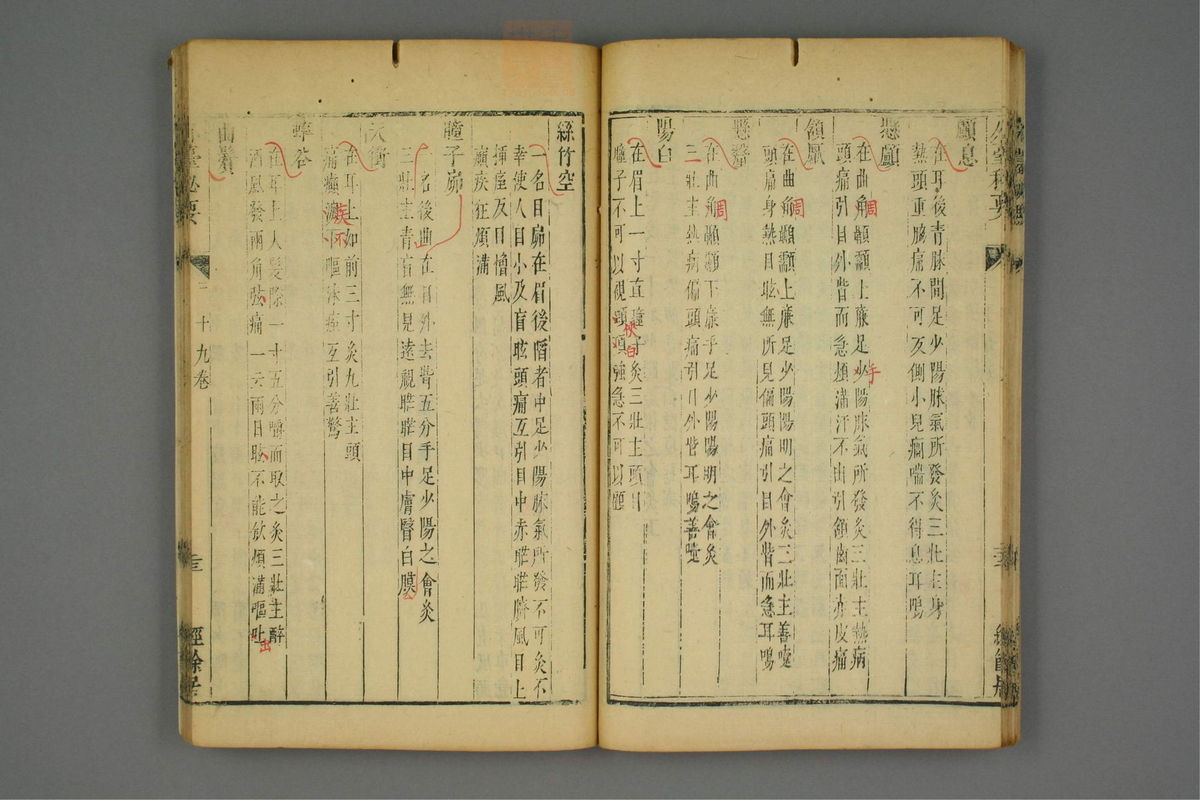 顱息
在耳後青脉間足少陽脉氣所發灸三壯主身
熱頭重脇痛不可反側小兒癎喘不得息耳鳴
懸顱
在曲角顳顬上廉足少陽脉氣所發灸三壯主熱病
頭痛引目外眥而急煩滿汗不出引頷齒面赤皮痛
周
手
頷厭
在曲角顳顬上廉足少陽陽明之會灸三壯主善嚏
頭痛身熱目眩無所見偏頭痛引目外眥而急耳鳴
周
懸釐
在曲角顳顬下廉手足少陽陽明之會灸
三壯主熱病偏頭痛引目外眥耳鳴善嚏
周
陽白
在眉上一寸直瞳子灸三壯主頭目
瞳子不可以視項強急不可以顧
絲竹空
一名目𦘺在眉後陷者中足少陽脉氣所發不可灸不
幸使人目小及盲眩頭痛互引目中赤𥆨𥆨臍風目上
插痙反目憎風
癲疾狂煩滿
瞳子𦘺
一名後曲在目外去眥五分手足少陽之會灸
三壯主青盲無見遠視𥆨𥆨目中膚翳白膜
天衝
在耳上如前三寸灸九壯主頭
痛癲嘔沫瘈互引善驚
率谷
在耳上入髮際一寸五分嚼而取之灸三壯主醉
酒風發兩角眩痛一云兩目眩不能飲煩滿嘔吐
出
曲鬢
外臺秘要
三十九卷
經餘居